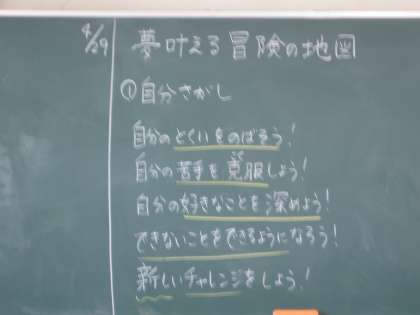 4/29
夢叶える冒険の地図
①自分さがし
自分のとくいをのばそう!
自分の苦手を克服しよう!
自分の好きなことを深めよう!
できないことをできるようになろう!
新しいチャレンジをしよう!